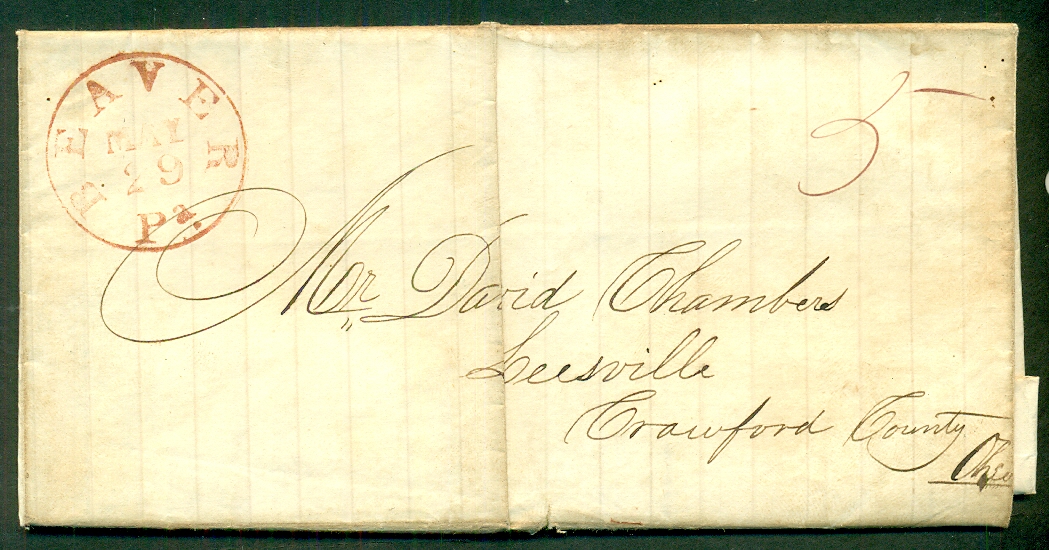 BEAVER
MAY
29
Pa.
5
Mr David Chambers
Leesville
Crawford County
Ohio